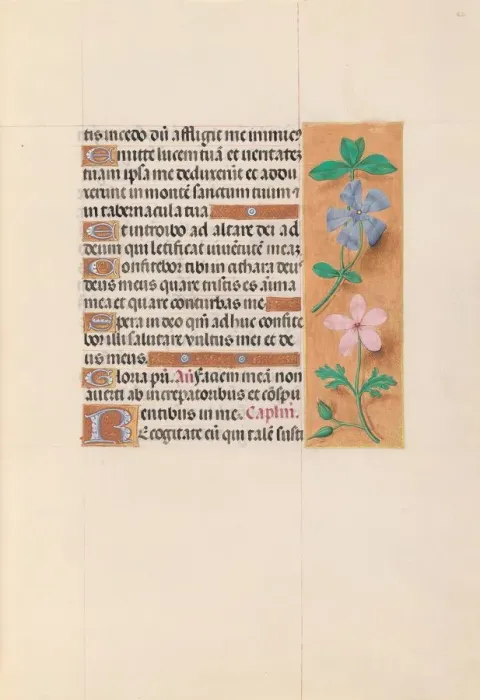 tis incedo dū affligit me inimic⁹
Emitte lucem tuā et ueritatez
tuam ipsa me deduxerūt et addu
xerunt in montē sanctum tuum ⁊
in tabernacula tua
Et introibo ad altare dei ad
deum qui letificat iuuētutē meaz
Confitebor tibi in cithara deus
deus meus quare tristis es aīma
mea et quare conturbas me
Spera in deo qm̄ adhuc confite
bor illi salutare vultus mei et de
us meus.
Gloria pr̄i. Añ Faciem meā non
auerti ab increpatoribus et cōspu
entibus in me. Capl̄m.
Recogitate eū qui talē susti